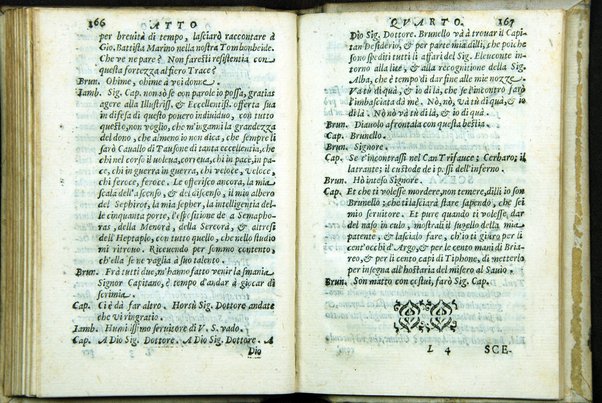 166 ATTO
per breuità di tempo, lasciarò raccontare à
Gio. Battista Marino nella nostra Tombonbeide.
Che ve ne pare? Non faresti resistentia con
questa fortezza al fiero Trace?
Brun. Ohime, ohime à vei donne.
Iamb. Sig. Cap. non sò se con parole io possa, gratias
agere alla Illustriss. & Eccellentiss. offerta sua
in difesa di questo pouero indiuiduo, con tutto
questo, non voglio, che m'inganni la grandezza
del dono, che almeno non dica, che sempre li
farò Cauallo di Pausone di tanta eccellentia, che
chi nel corso il voleua, correua, chi in pace, in pa-
ce, chi in guerra, in guerra, chi veloce, veloce,
chi feroce, feroce. Le offerisco ancora, la mia
scala dell'ascenso, & del discenso, il mio albero
del Sephirot, la mia sepher, la intelligentia del-
le cinquanta porte, l'espositione de a Semapho-
ras, della Menorà, della Sercorà, & altresi
dell'Heptapio, con tutto quello, che nello studio
mi ritrouo. Riceuendo per sommo contento,
ch'ella se ne vaglia à suo talento.
Brun. Frà tutti due, m'hanno fatto venir la smania
Signor Capitano, è tempo d'andar à giocar di
scrimia.
Cap. Ci è dà far altro. Horsù Sig. Dottore andate
che vi ringratio.
Iamb. Humilissimo seruitore di V. S. vado.
Cap. A Dio Sig. Dottore. A Dio Sig. Dottore. A
Dio
QVARTO. 167
Dio Sig. Dottore. Brunello và à trouar il Capi-
tan Desiderio, & per parte mia dilli, che poi che
sono spediti tutti li affari del Sig. Eleuconte in-
torno alla lite, & alla recognitione della Sig.
Alba, che è tempo di dar fine alle mie nozze.
Và tù di quà, & io di là, che se l'incontro farò
l'imbasciata dà mè. Nò, nò, và tù di quà, & io
di là. Nò nò và tù di là, & io di quà.
Brun. Diauolo afrontala con questa bestia.
Cap. Brunello.
Brun. Signore.
Cap. Se t'incontrassi nel Can Trifauce; Cerbaro; il
latrante; il custode de i passi dell'inferno.
Brun. Hò inteso Signore.
Cap. Et che ti volesse mordere, non temere, dilli io son
Brunello; che ti lasciarà stare sapendo, che sei
mio seruitore. Et pure quando ti volesse, dar
del naso in culo, mostrali il sugello della mia
patente, & lascialo fare, ch'io ti giuro per li
cent'occhi d'Argo, & per le cento mani di Bria-
reo, & per li cento capi di Tiphone, di metterlo
per insegna all'hostaria del misero al Sauio.
Brun. Son matto con costui, farò Sig. Cap.
L 4 SCE-